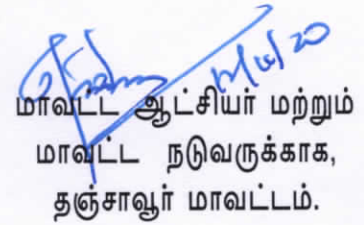 மாவட்ட ஆட்சியர் மற்றும்
மாவட்ட நடுவருக்காக,
தஞ்சாவூர் மாவட்டம்.